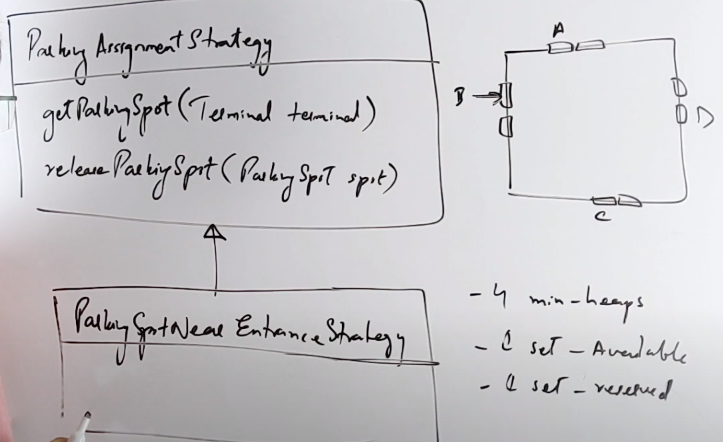 Parking Assignment Strategy
getParkingSpot(Terminal terminal)
releaseParkingSpot(ParkingSpot spot)
ParkingSpotNear EntranceStrategy
A
B
D
C
- 4 min-heaps
- 1 set - Available
- 1 set - reserved